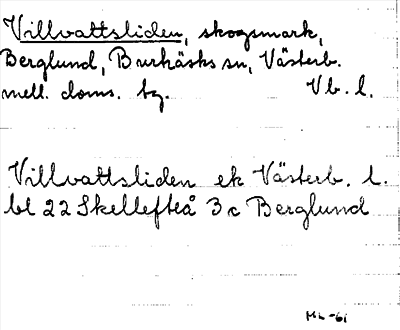 Villvattsliden, skogsmark,
Berglund, Burträsks sn, Västerb.
mell. doms. tg. Vb. l.
Villvattsliden ek Västerb. l.
bl 22 Skellefteå 3c Berglund